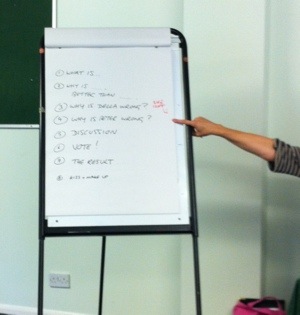 ① WHAT IS
② WHY IS
BETTER THAN
③ WHY IS DELLA WRONG?
④ WHY IS PETER WRONG?
⑤ DISCUSSION
⑥ VOTE!
⑦ THE RESULT
⑧ KISS + MAKE UP